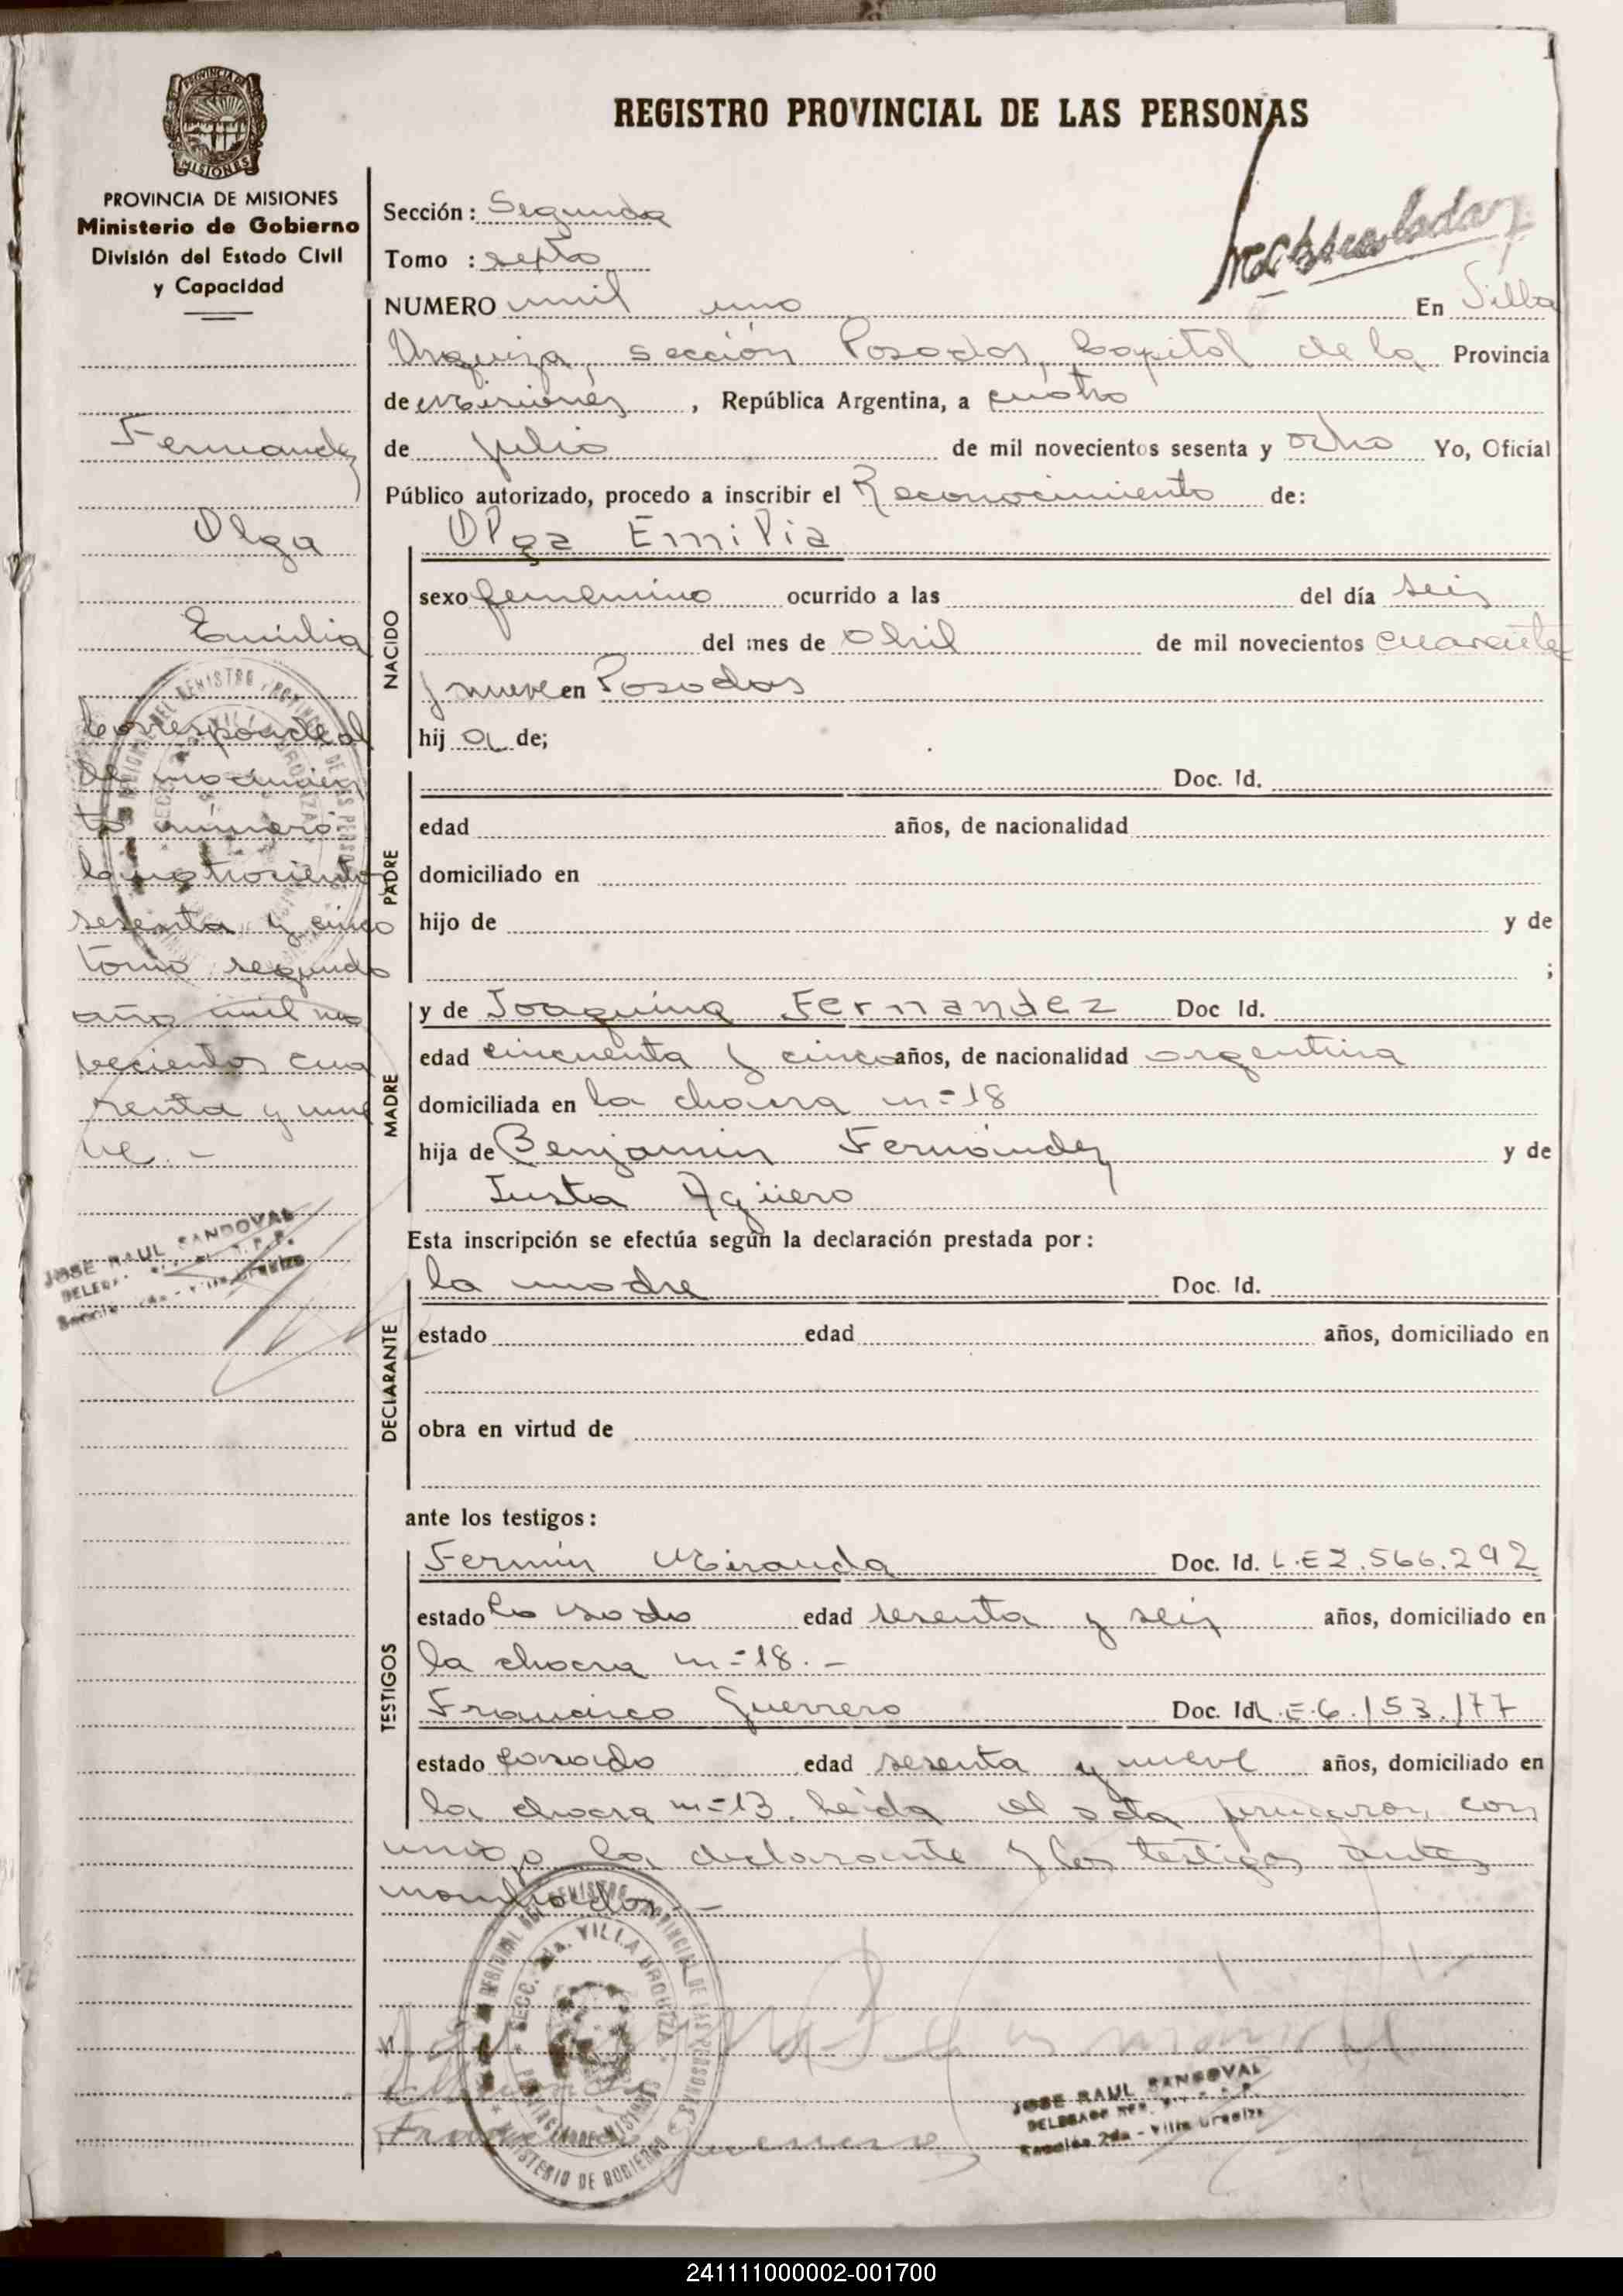 REGISTRO PROVINCIAL DE LAS PERSONAS
PROVINCIA DE MISIONES
Ministerio de Gobierno
División del Estado Civil
y Capacidad
Fernandez
Olga
Emilia
Corresponde al
de nacimien
to número
Cuatrociento
sesenta y cinco
tomo segundo
año mil no
vecientos cua
renta y nue
ve.-
JOSE RAUL SANDOVAL
Sección: Segunda
Tomo : septo
NUMERO mil uno En Villa
Urquiza, sección Posadas, Capital de la Provincia
de Misiones, República Argentina, a cuatro
de julio de mil novecientos sesenta y ocho Yo, Oficial
Público autorizado, procedo a inscribir el Reconocimiento de:
NACIDO
Olga Emilia
sexo femenino ocurrido a las del día seis
del mes de Abril de mil novecientos cuarenta
y nueve en Posadas
hij a de;
PADRE
Doc. Id.
edad años, de nacionalidad
domiciliado en
hijo de y de
;
MADRE
y de Joaquina Fernandez Doc Id.
edad cincuenta y cinco años, de nacionalidad argentina
domiciliada en la chacra n=18
hija de Benjamin Fernández y de
Justa Agüero
Esta inscripción se efectúa según la declaración prestada por:
DECLARANTE
la madre Doc. Id.
estado edad años, domiciliado en
obra en virtud de
ante los testigos:
TESTIGOS
Fermín Miranda Doc. Id. L.E 2.566.292
estado Casado edad sesenta y seis años, domiciliado en
la chacra n=18.-
Francisco Guerrero Doc. Id L.E.6.153.177
estado casado edad sesenta y nueve años, domiciliado en
la chacra n=13. Leída el acta firmaron con
migo la declarante y los testigos antes
nombrados.-
SECC. 2da. VILLA URQUIZA
MINISTERIO DE GOBIERNO
JOSE RAUL SANDOVAL
Sección 2da - Villa Urquiza
241111000002-001700